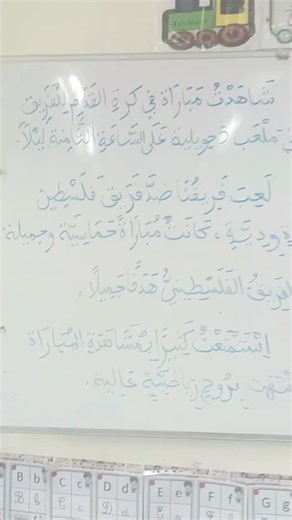 شَاهَدْتُ مُبَارَاة فِي كرةِ القَدَمِ لِلْفَرِيق
مَلْعَب 5 جويلية عَلَى السَّاعَةِ الثَّامِنَةِ لَيْلًا.
لَعِبَ فَرِيقُنَا ضِدَّ فَرِيقِ فَلَسْطِين
وِدِيَّةٍ، كَانَتْ مُبَارَاةً حَمَاسِيَّةً وجميلة
الفَرِيقُ الفَلَسْطِينِيُّ هَدَفًا جَمِيلًا.
اِسْتَمْتَعْتُ كَثِيرًا بِمُشَاهَدَةِ المُبَارَاة
بِرُوحٍ رِيَاضِيَّةٍ عَالِيَة.
B b C c D d E e F f G g